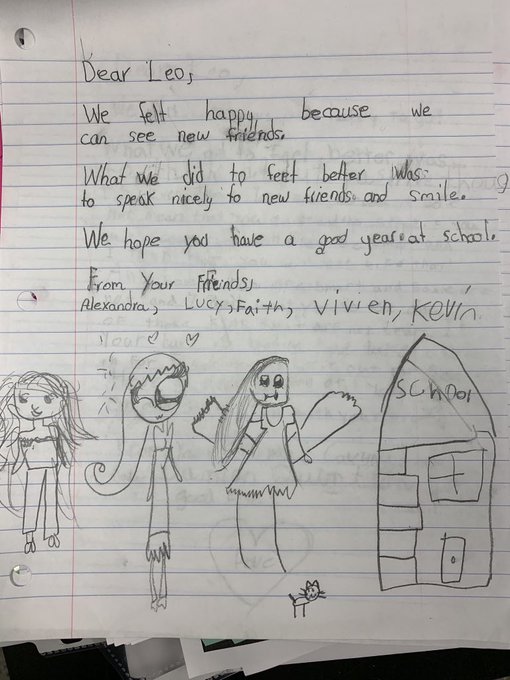 Dear Leo,
We felt happy, because we
can see new friends.
What we did to feel better was
to speak nicely to new friends. and smile.
We hope you have a good year at school.
From Your Friends,
Alexandra, LUCY, Faith, Vivien, Kevin
SCHOOL